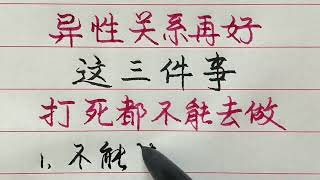 异性关系再好
这三件事
打死都不能去做
1、不能